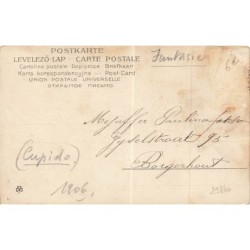 POSTKARTE
LEVELEZŐ-LAP - CARTE POSTALE
Cartolina postale Dopisnice Briefkaart
Karta korespondencyjna - Post-Card
UNION POSTALE UNIVERSELLE
ОТКРЫТОЕ ПИСЬМО
Fantasie
(Cupido)
1806.
Mejuffer Paulina
Ijzelstraat 95
Borgerhout